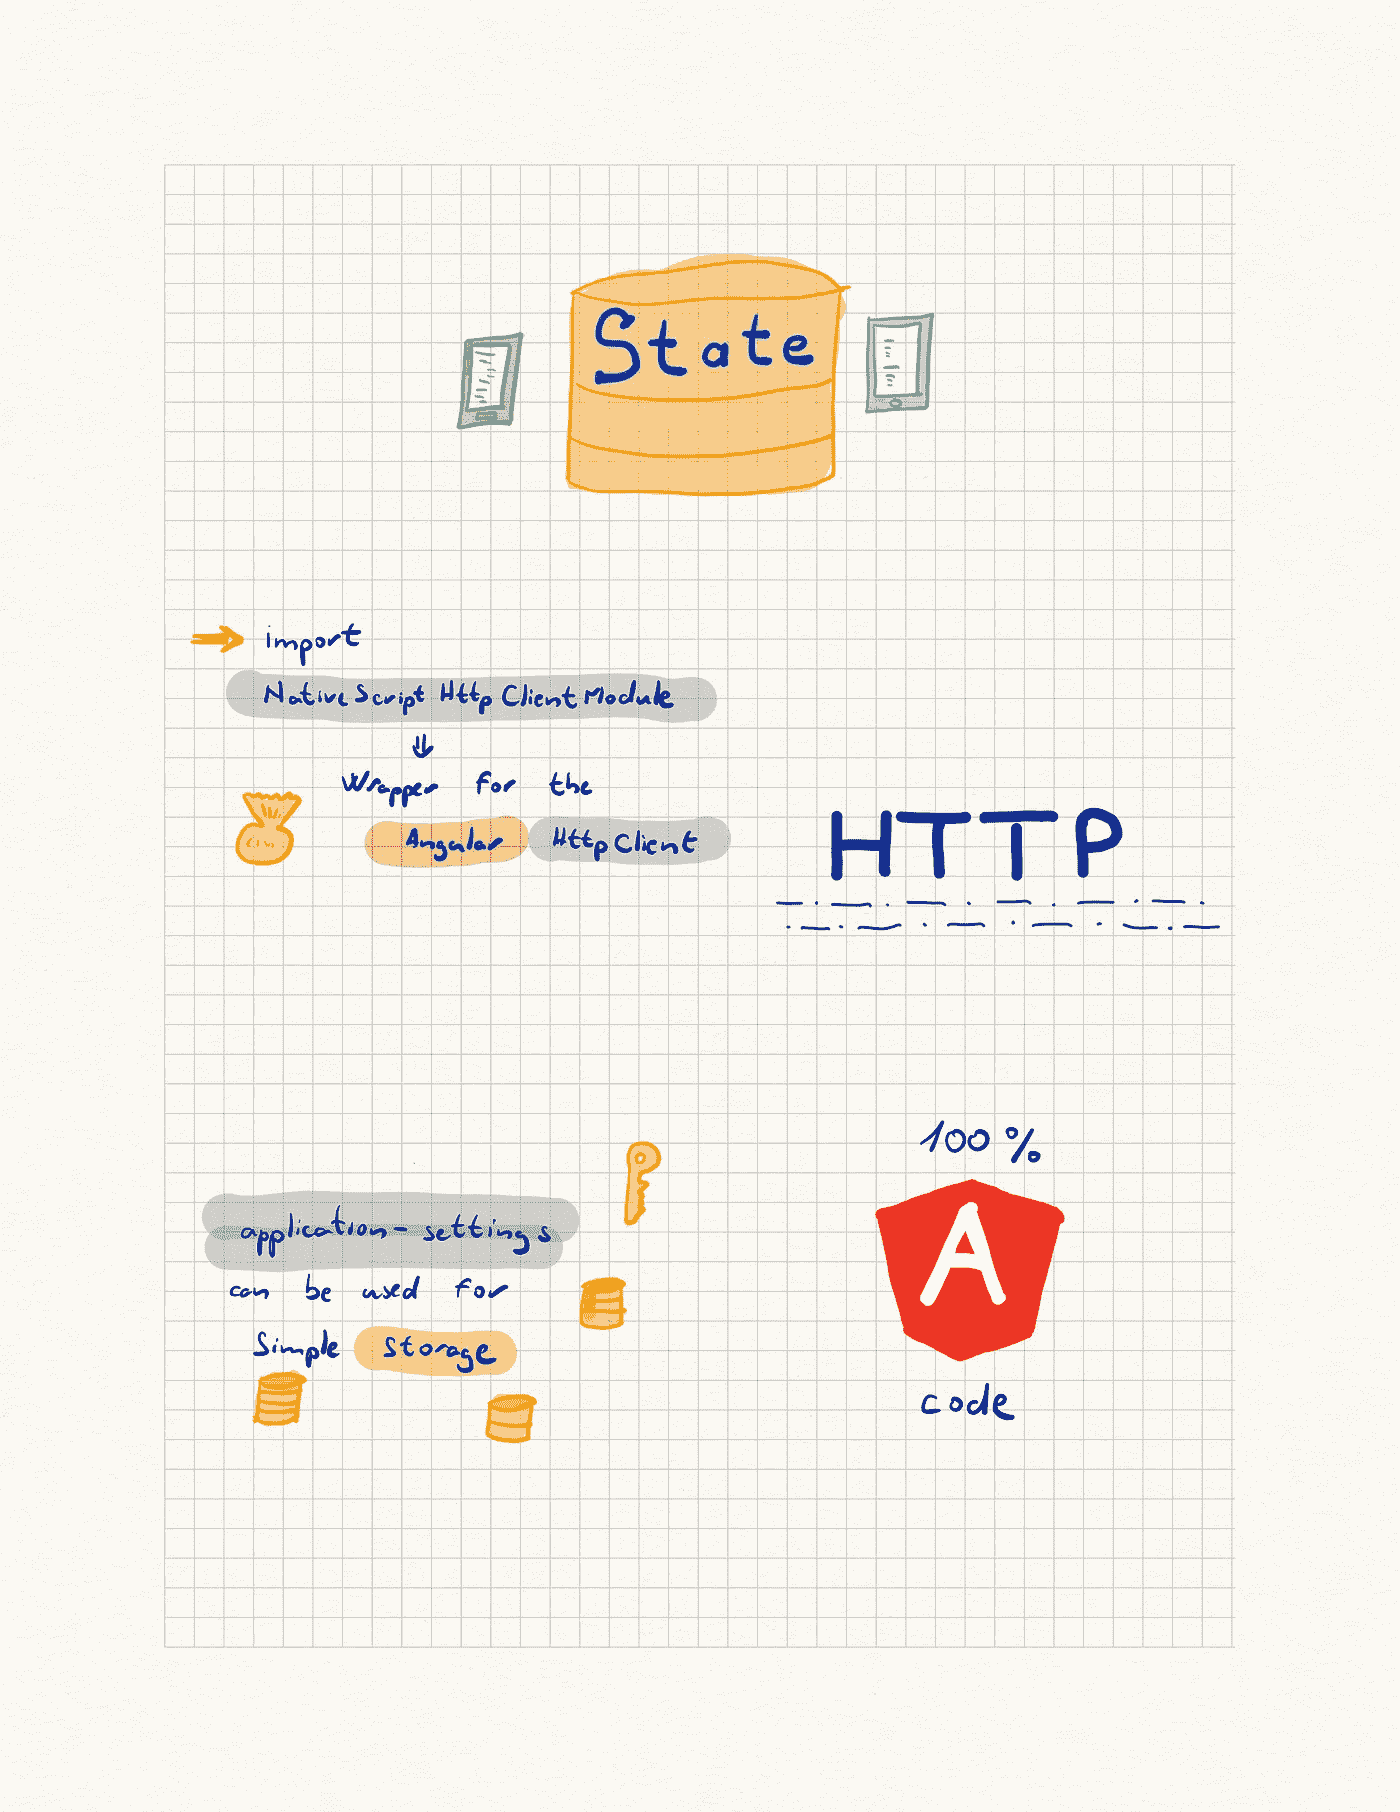 State
import
NativeScript Http Client Module
Wrapper for the
Angular Http Client
HTTP
100 %
A
code
application-settings
can be used for
Simple Storage